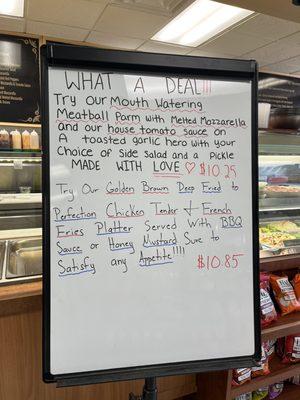 WHAT A DEAL!!!
Try Our Mouth Watering
Meatball Parm with Melted Mozzarella
and our house tomato Sauce on
A toasted garlic hero with your
Choice of Side Salad and a Pickle
MADE WITH LOVE ♡ $10.25
Try Our Golden Brown Deep Fried to
Perfection Chicken Tender + French
Fries Platter Served With BBQ
Sauce or Honey Mustard Sure to
Satisfy any Appetite!!!!
$10.85